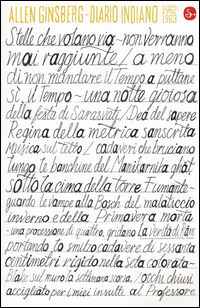 ALLEN GINSBERG - DIARIO INDIANO 1962 1963
Stelle che volano via - non verranno
mai raggiunte / a meno
di non mandare il Tempo a puttane
Sì, il Tempo - una notte gioiosa
della festa di Sarasvati / Dea del sapere
Regina della metrica sanscrita
Musica sul tetto / cadaveri che bruciano
lungo le banchine del Manikarnika ghat
sotto la cima della torre Fumante
quando le vampe alla Bosch del malaticcio
inverno e della Primavera morta -
una processione di quattro, gridano la verità di
portando, lo smilzo cadavere di sessanta
centimetri rigido nella seta colorata -
sul muro la settimana scorsa. occhi chiusi
accigliato per i miei insulti al Professore